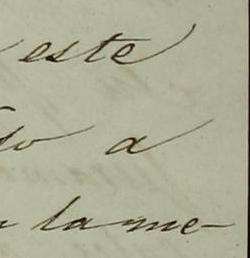 este
a
lame-